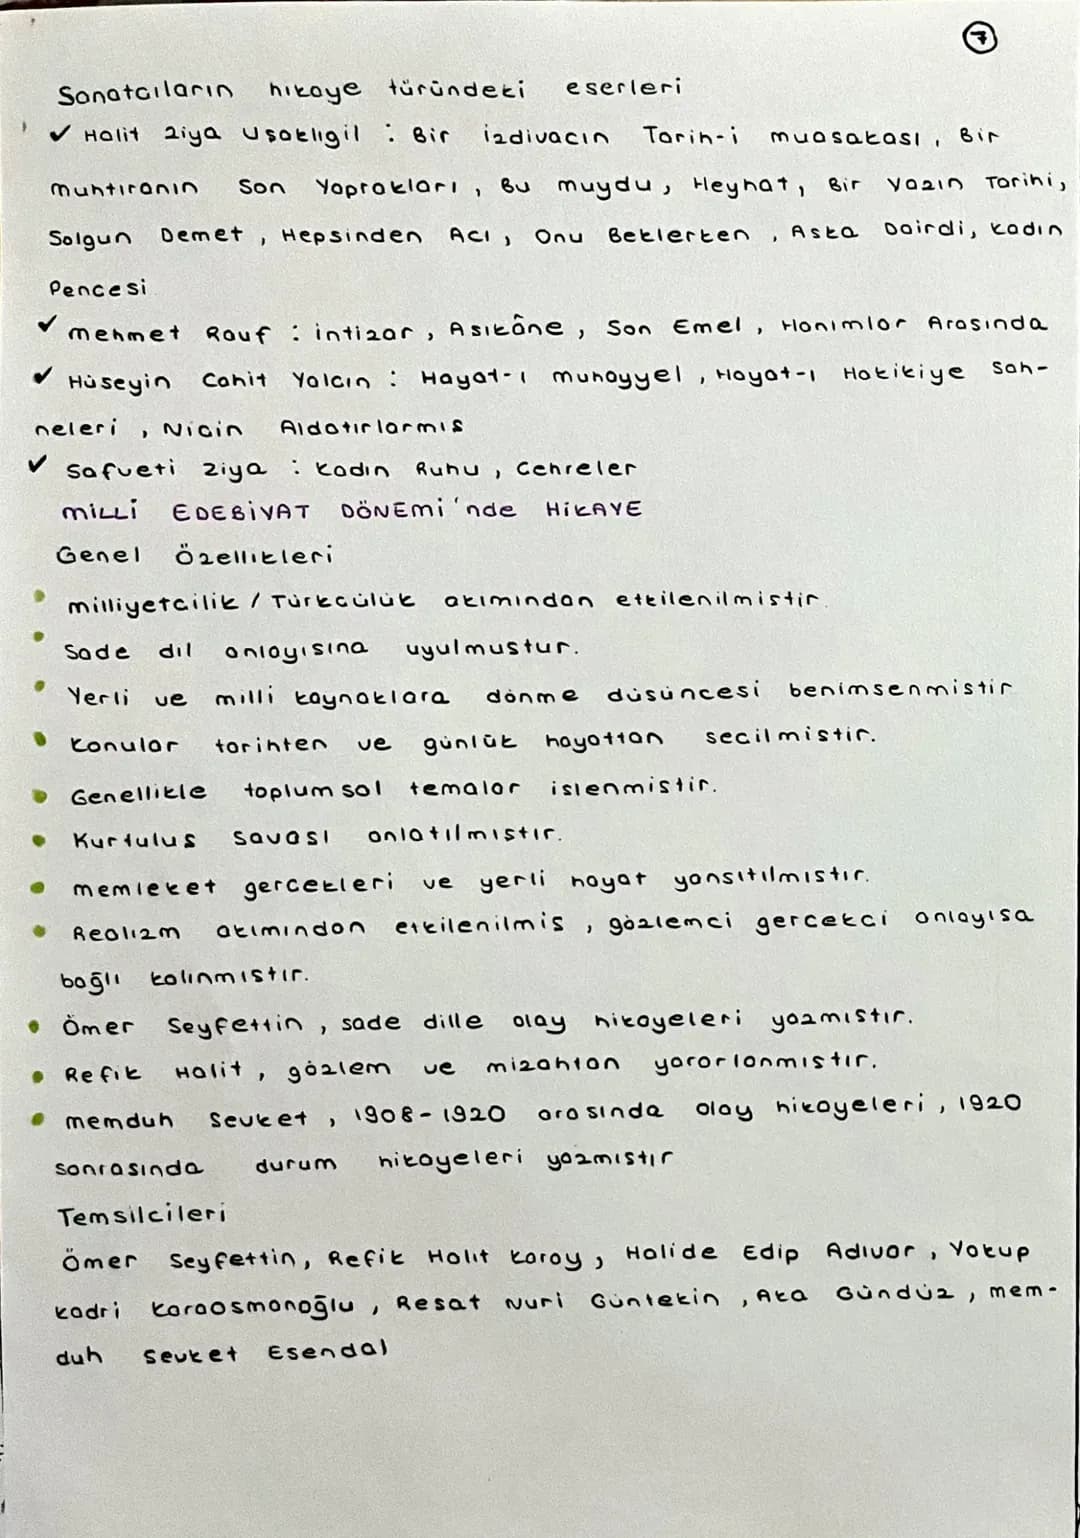 7
Sanatcıların hikaye türündeki eserleri
✓ Halit Ziya Usaklıgil : Bir izdivacın Tarih-i muasakası, Bir
muhtıranın Son Yaprakları, Bu muydu, Heyhat, Bir Yazın Tarihi,
Solgun Demet, Hepsinden Acı, Onu Beklerken, Aska Dairdi, kadın
Pencesi
✓ mehmet Rauf : intizar, Asıkâne, Son Emel, Hanımlar Arasında
✓ Hüseyin Cahit Yalcın : Hayat-ı muhayyel, Hayat-ı Hakikiye Sah-
neleri, Nicin Aldatırlarmıs
✓ Safveti Ziya : kadın Ruhu, Cehreler
miLLi EDEBİYAT DÖNEMi'nde HiKAYE
Genel Özellikleri
• milliyetcilik / Türkcülük akımından etkilenilmistir.
• Sade dil anlayısına uyulmustur.
• Yerli ve milli kaynaklara dönme düsüncesi benimsenmistir
• konular tarihten ve günlük hayattan secilmistir.
• Genellikle toplumsal temalar islenmistir.
• Kurtulus Savası anlatılmıstır.
• memleket gercekleri ve yerli hayat yansıtılmıstır.
• Realizm akımından etkilenilmis, gözlemci gercekci anlayısa
bağlı kalınmıstır.
• Ömer Seyfettin, sade dille olay hikayeleri yazmıstır.
• Refik Halit, gözlem ve mizahtan yararlanmıstır.
• memduh Sevket, 1908-1920 arasında olay hikayeleri, 1920
sonrasında durum hikayeleri yazmıstır
Temsilcileri
Ömer Seyfettin, Refik Halit karay, Halide Edip Adıvar, Yakup
kadri karaosmanoğlu, Resat Nuri Güntekin, Aka Gündüz, mem-
duh sevket Esendal